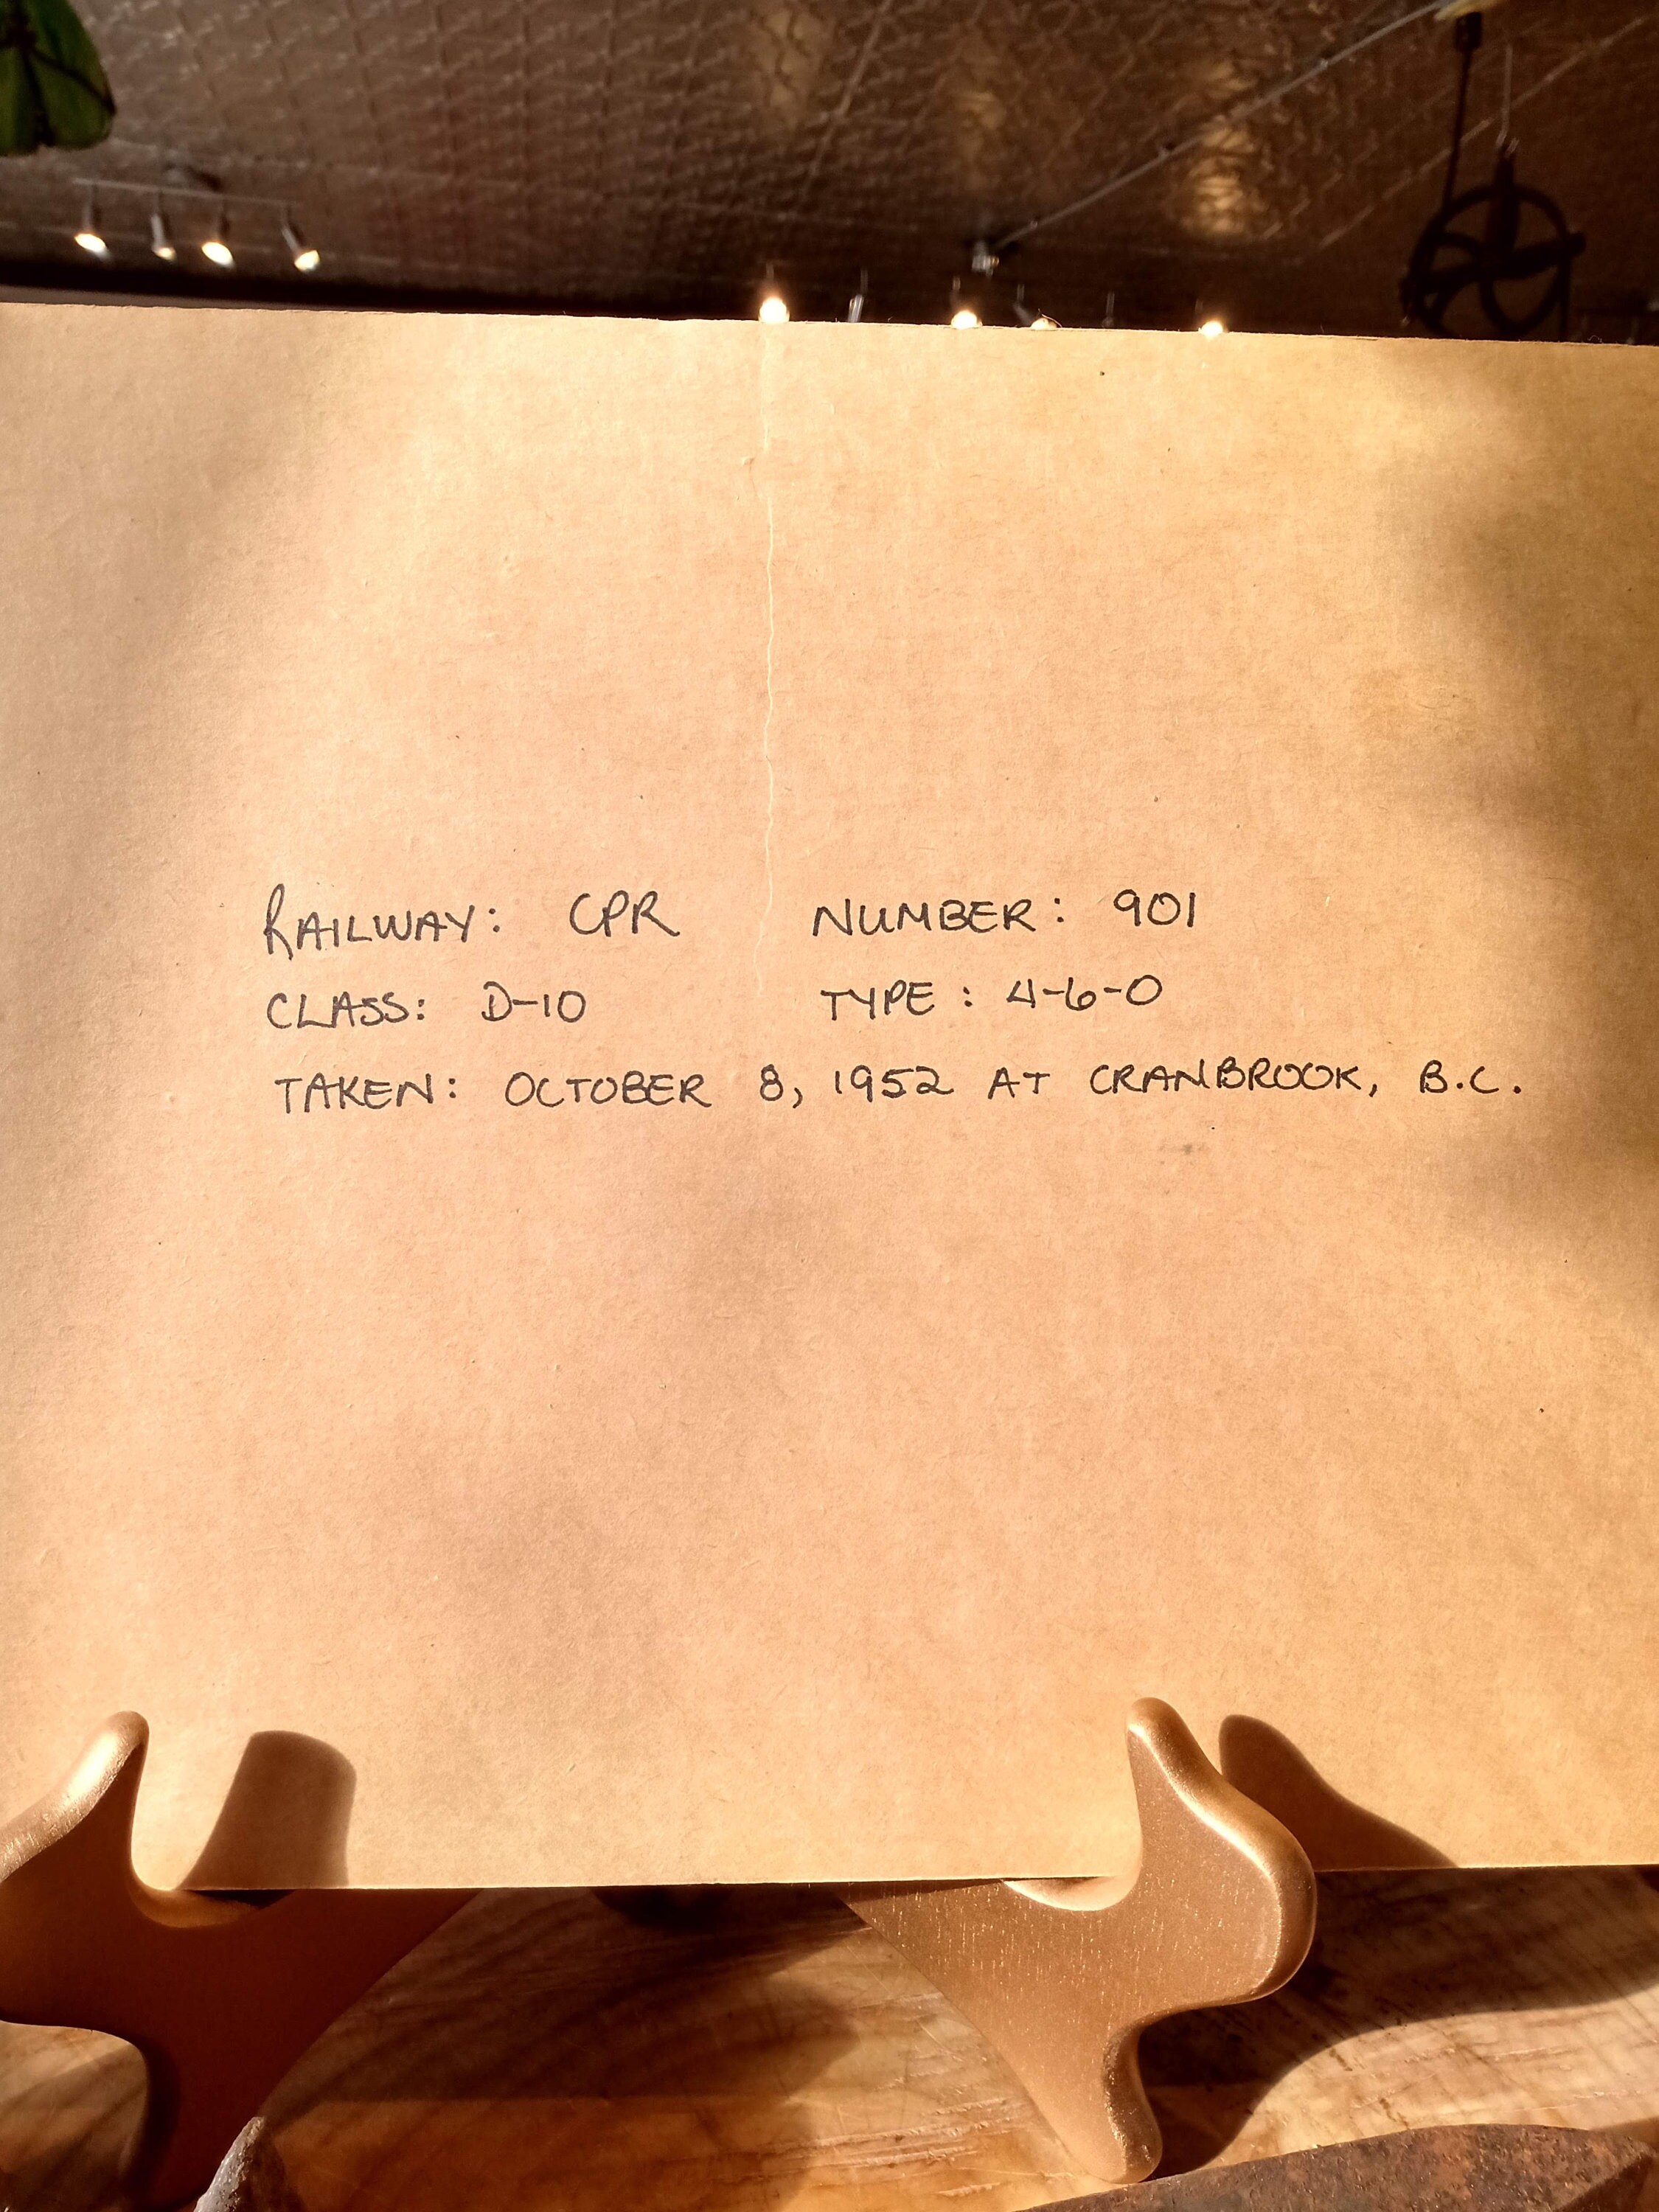 RAILWAY: CPR NUMBER: 901
CLASS: D-10 TYPE: 4-6-0
TAKEN: OCTOBER 8, 1952 AT CRANBROOK, B.C.